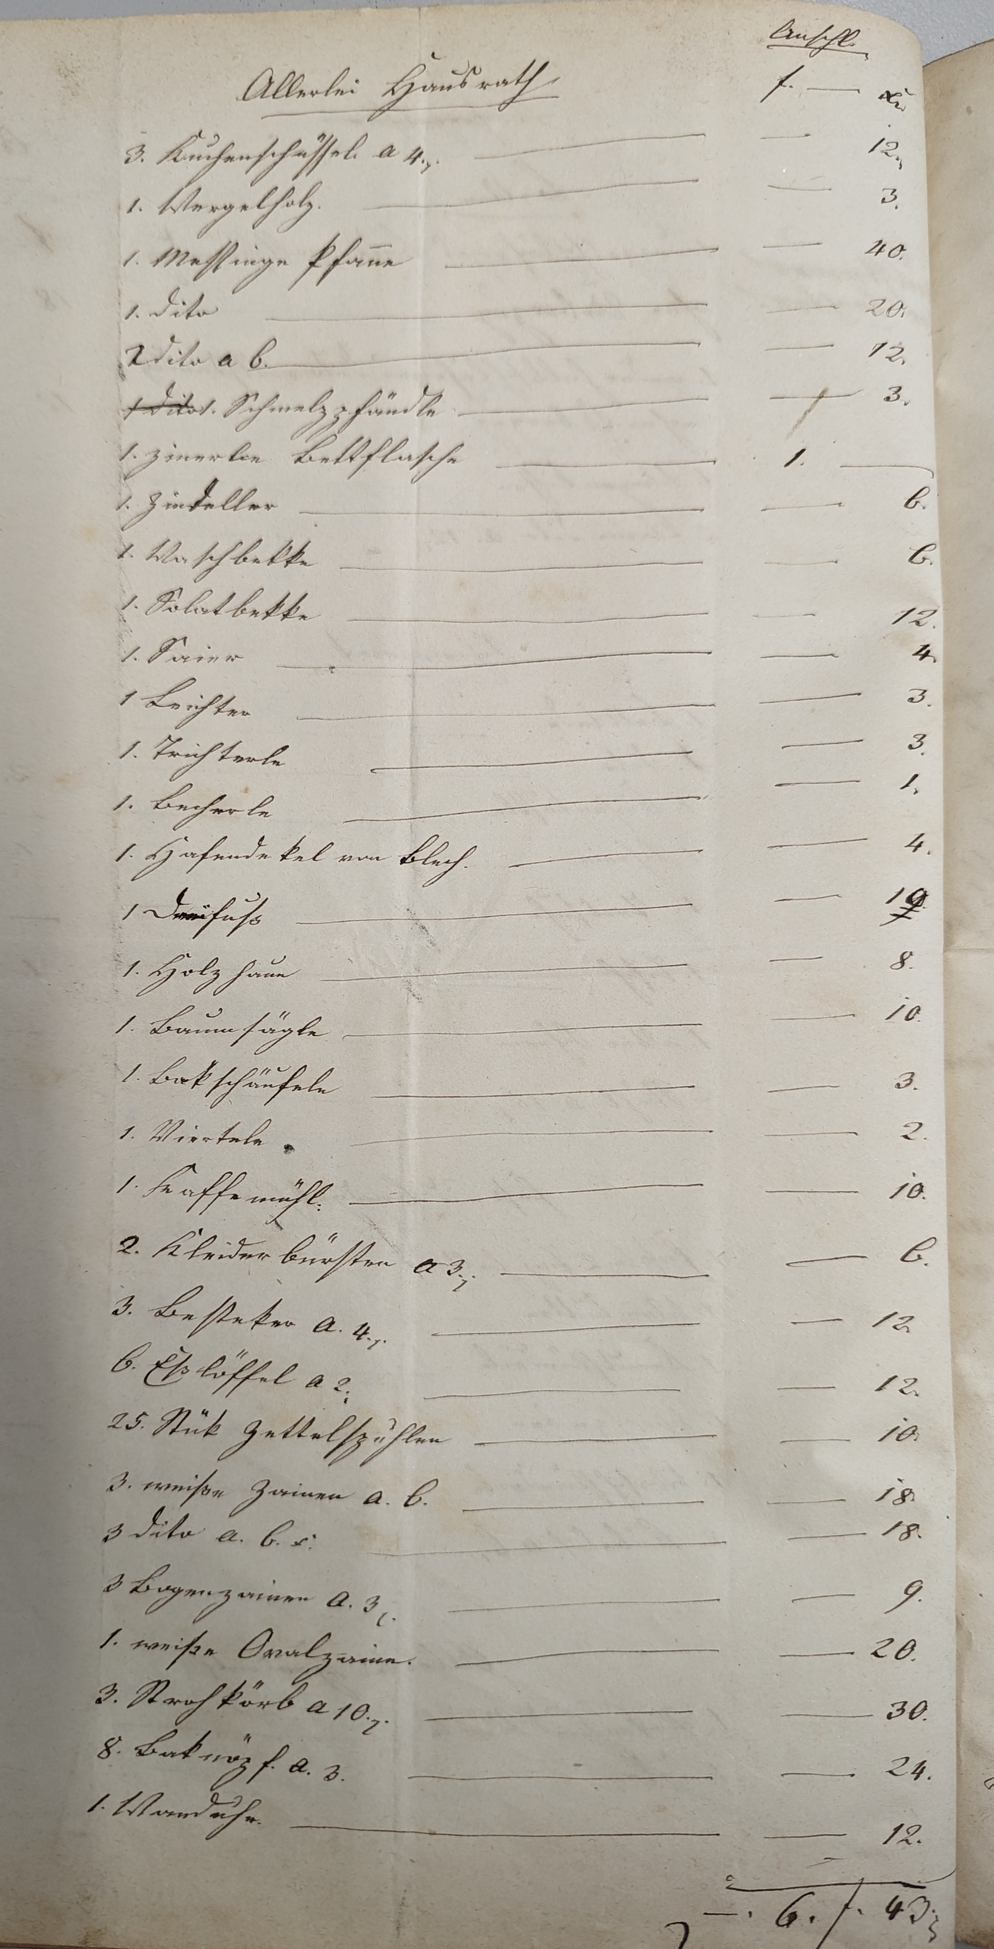 Anschl.
Allerlei Hausrath f. — xr.
3. Kuchenschüssel a 4. — — 12.
1. Wergelholz. — — 3.
1. Messinge Pfanne — — 40.
1. dito — — 20.
2 dito a 6. — — 12.
1. Schmelzpfändle — — 3.
1. zinerne Bettflasche — 1. —
1. Zindeller — — 6.
1. Waschbekke — — 6.
1. Solatbekke — — 12.
1. Saier — — 4.
1 Leichter — — 3.
1. Trichterle — — 3.
1. Becherle — — 1.
1. Hafendekel von Blech. — — 4.
1 Dreifuß — — 10.
1. Holzhaue — — 8.
1. Baumsägle — — 10.
1. Bakschäufele — — 3.
1. Viertele — — 2.
1. Kaffemühl. — — 10.
2. Kleiderbürsten a 3. — — 6.
3. Besteker a. 4. — — 12.
6. Eßlöffel a 2. — — 12.
25. Stük Zettelspuhlen — — 10.
3. weiße Zainen a. 6. — — 18.
3 dito a. 6. x. — — 18.
3 Bogenzainen a. 3. — — 9.
1. weiße Ovalzaine. — — 20.
3. Strohkörb a 10. — — 30.
8. Baknäpf. a. 3. — — 24.
1. Wanduhr. — — 12.
—. 6. f. 43.